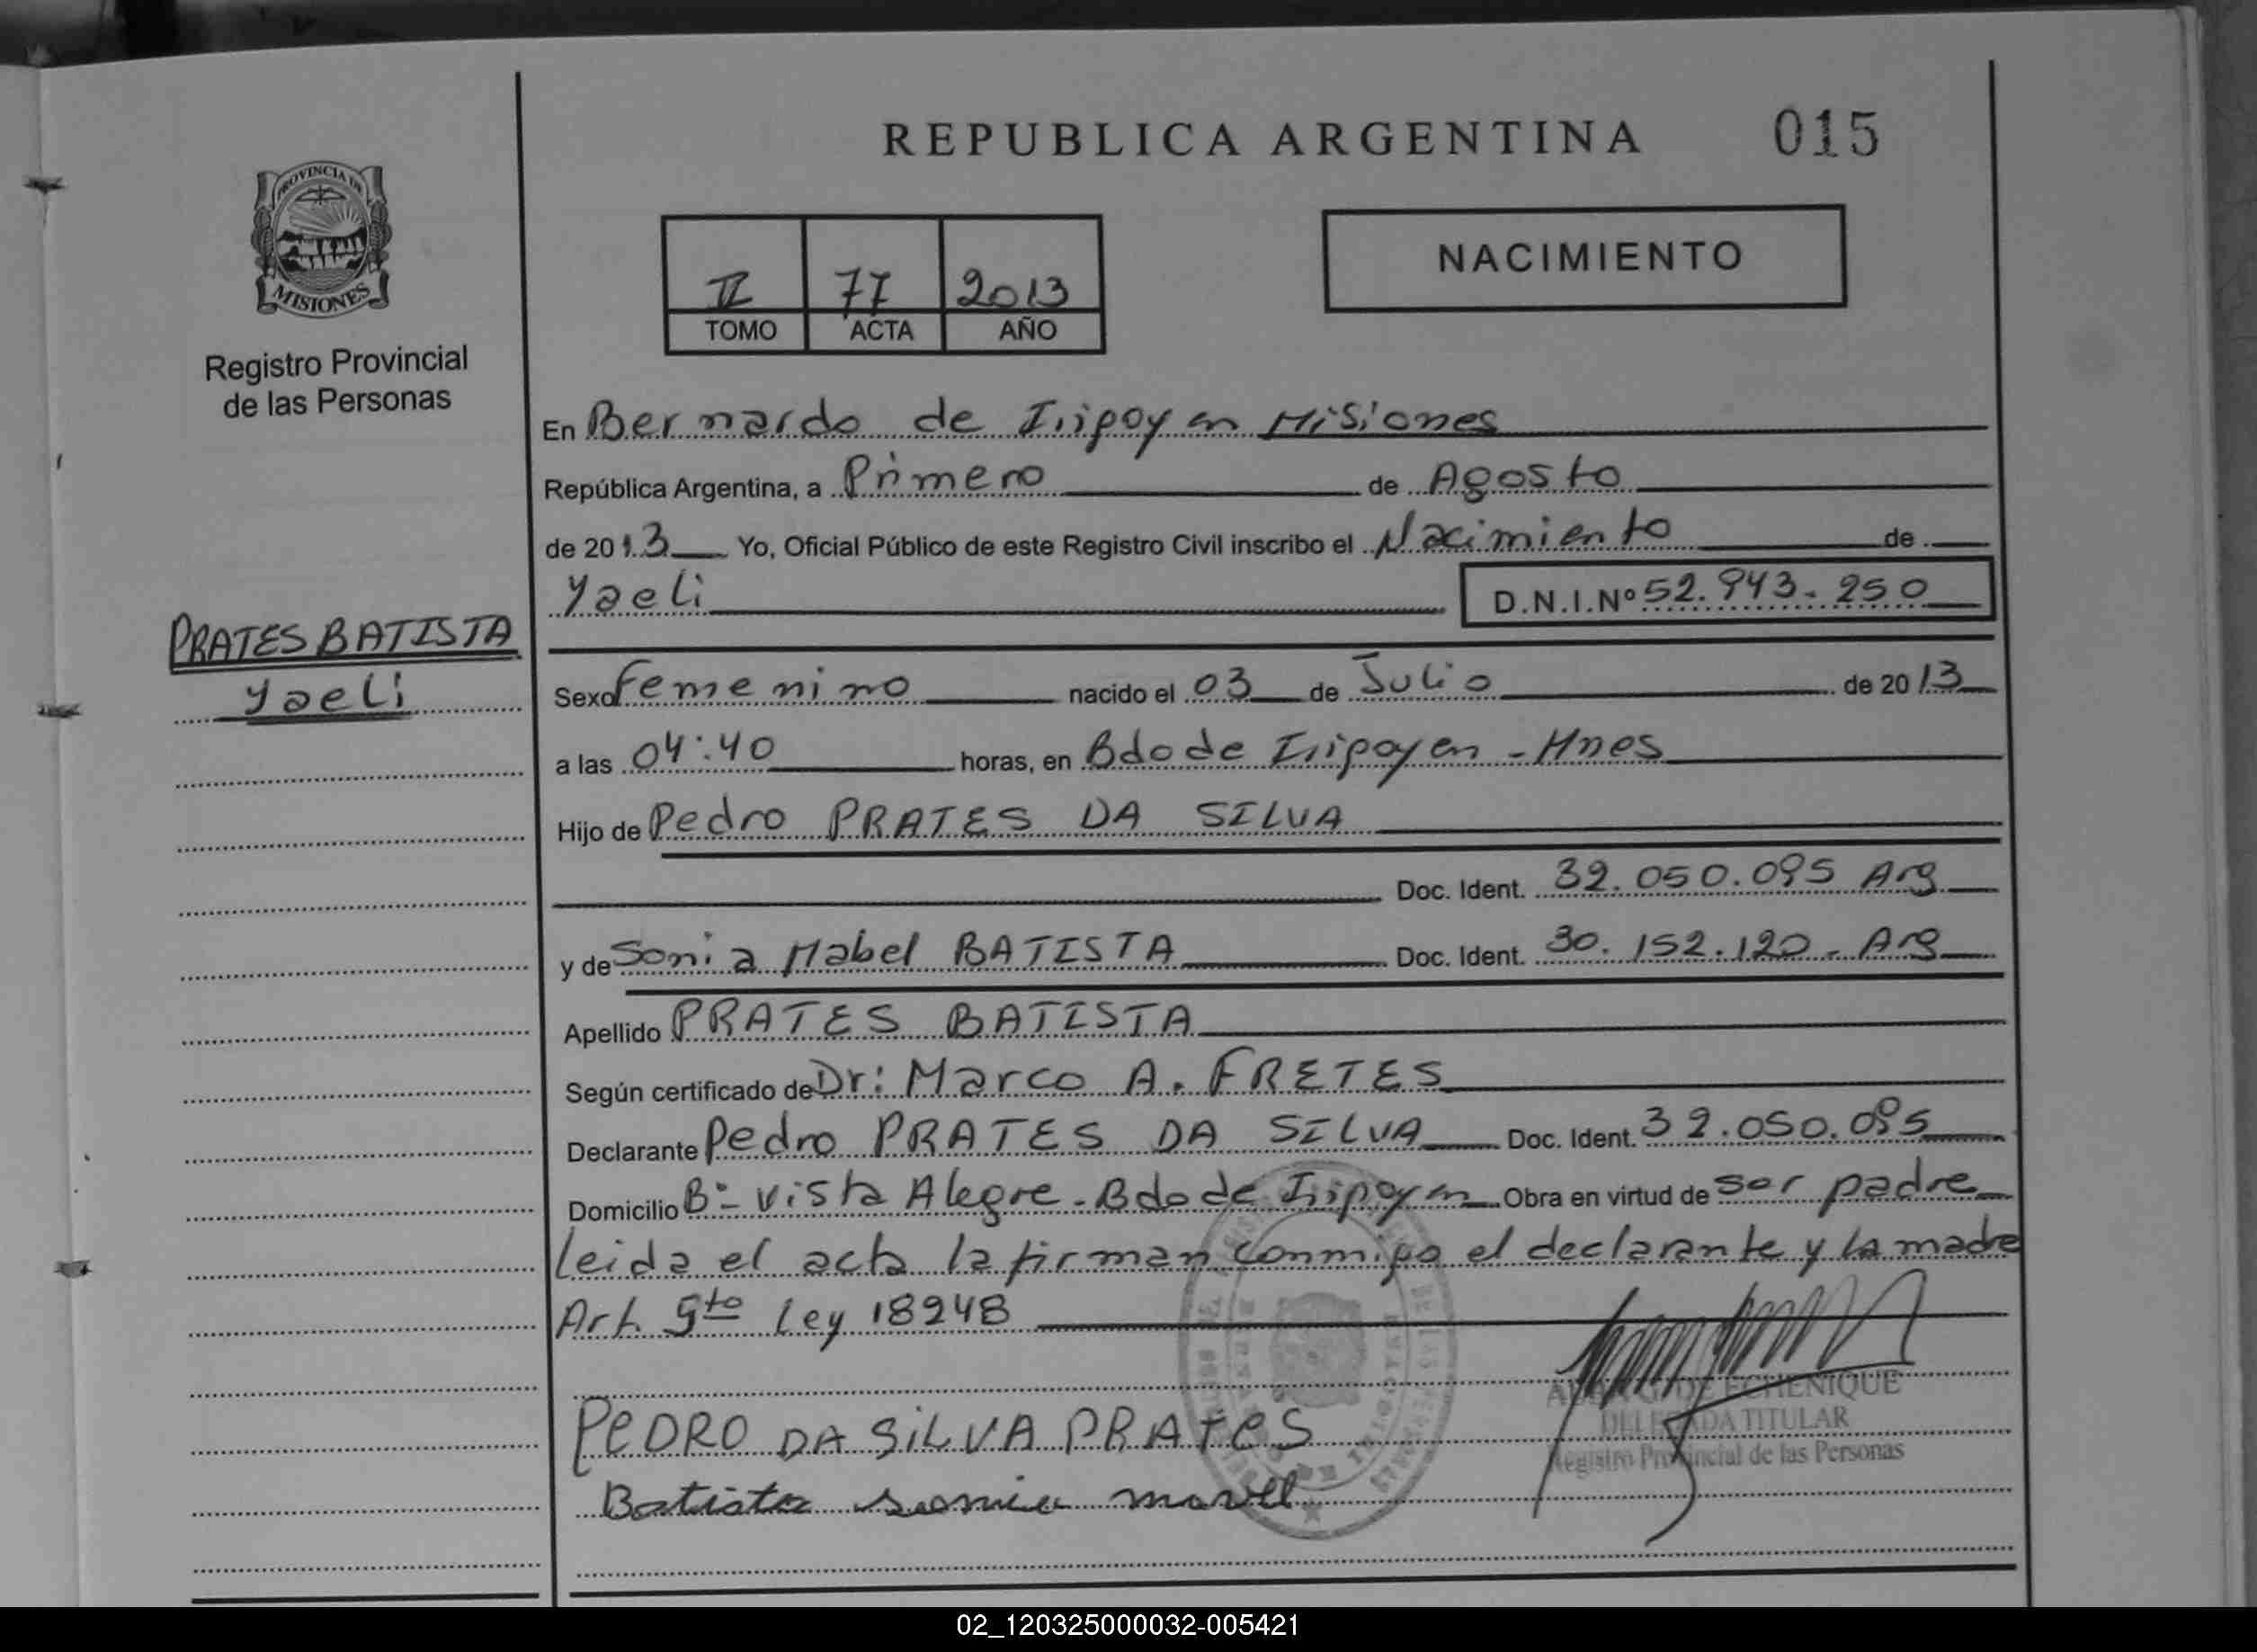 REPUBLICA ARGENTINA 015
PROVINCIA DE
MISIONES
Registro Provincial
de las Personas
II 77 2013
TOMO ACTA AÑO
NACIMIENTO
En Bernardo de Irigoyen Misiones
República Argentina, a Primero de Agosto
de 2013 Yo, Oficial Público de este Registro Civil inscribo el Nacimiento de
Yaeli D.N.I.Nº 52.943.250
PRATES BATISTA
Yaeli
Sexo Femenino nacido el 03 de Julio de 2013
a las 04:40 horas, en Bdo de Irigoyen - Mnes
Hijo de Pedro PRATES DA SILVA
Doc. Ident. 32.050.095 Arg
y de Sonia Mabel BATISTA Doc. Ident. 30.152.120 - Arg
Apellido PRATES BATISTA
Según certificado de Dr: Marco A. FRETES
Declarante Pedro PRATES DA SILVA Doc. Ident. 32.050.095
Domicilio Bº Vista Alegre - Bdo de Irigoyen Obra en virtud de ser padre
Leida el acta la firman conmigo el declarante y la madre
Art. 5to Ley 18248
ECHENIQUE
DELEGADA TITULAR
Registro Provincial de las Personas
PEDRO DA SILVA PRATES
Batista sonia mavel
02_120325000032-005421